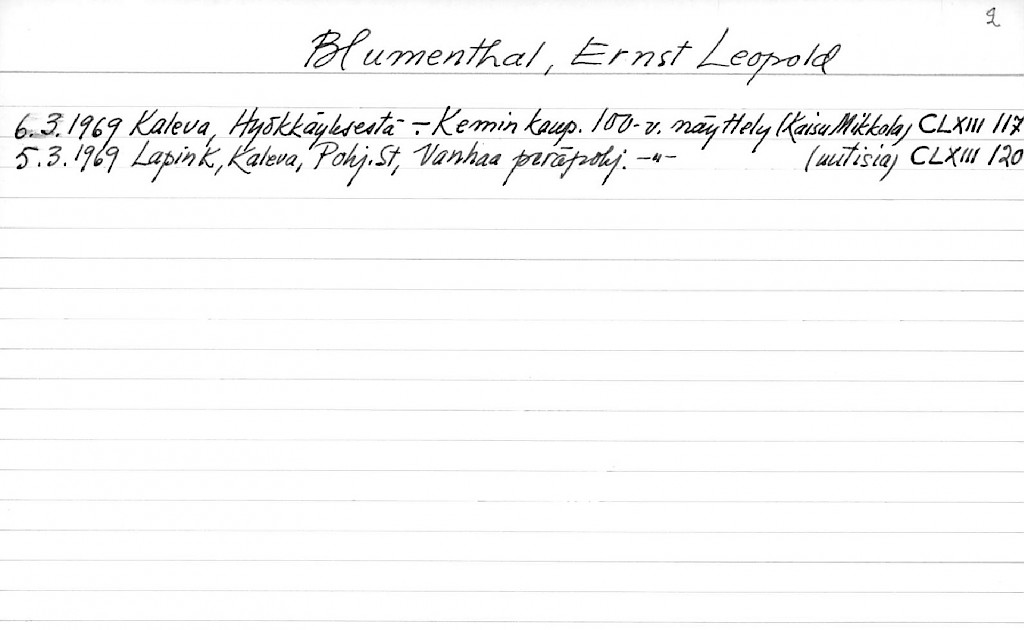 2
Blumenthal, Ernst Leopold
6.3.1969 Kaleva, Hyökkäyksestä -:- Kemin kaup. 100-v. näyttely (Kaisu Mikkola) CLXIII 117
5.3.1969 Lapin K, Kaleva, Pohj. St, Vanhaa peräpohj. -"- (uutisia) CLXIII 120